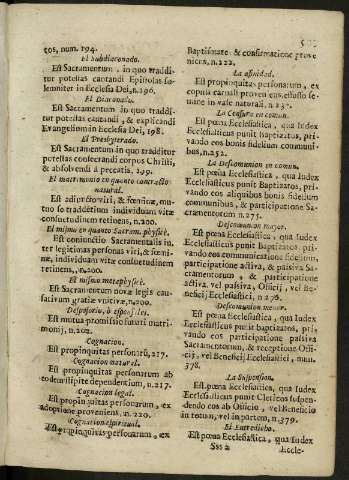 tos, num. 194.
El Subdiaconado.
Est Sacramentum, in quo traddi-
tur potestas cantandi Epistolas so-
lemniter in Ecclesia Dei, n. 196.
El Diaconato.
Est Sacramentum in quo traddi-
tur potestas cantandi, & explicandi
Evangelium in Ecclesia Dei, 198.
El Presbyterado.
Est Sacramentum in quo traditur
potestas consecrandi corpus Christi,
& absolvendi à peccatis, 199.
El matrimonio en quanto contracto
natural.
Est adiunctio viri, & fœminæ, mu-
tuo se tradentium individuam vitæ
consuetudinem retinens, n. 200.
El mismo en quanto Sacram. physicè.
Est coniunctio Sacramentalis in-
ter legitimas personas viri, & fœmi-
næ, individuam vitæ consuetudinem
retinens, n. 200.
El mismo metaphysicè.
Est Sacramentum novæ legis cau-
sativum gratiæ unitivæ, n. 200.
Desposorio, ò esponsales.
Est mutua promissio futuri matri-
monij, n. 202.
Cognacion.
Est propinquitas personarum, 217.
Cognacion natural.
Est propinquitas personarum ab
eodem stipite dependentium, n. 217.
Cognacion legal.
Est propinquitas personarum, ex
adoptione proveniens. n. 220.
Cognacion espiritual.
Est propinquitas personarum, ex
Baptismate & confirmatione prove-
niens, n. 222.
La afinidad.
Est propinquitas personarum, ex
copula carnali proveniens, effusio se-
mine in vase naturali. n. 232.
La Censura en comun.
Est pœna Ecclesiastica, qua Iudex
Ecclesiasticus punit Baptizatos, pri-
vando eos bonis fidelium communi-
bus, n. 252.
La Descomunion en comun.
Est pœna Ecclesiastica, qua Iudex
Ecclesiasticus punit Baptizatos, pri-
vando eos aliquibus bonis fidelium
communibus, & participatione Sa-
cramentorum n. 275.
Descomunion mayor.
Est pœna Ecclesiastica, qua Iudex
Ecclesiasticus punit Baptizatos, pri-
vando eos communicatione fidelium,
participatione activa, & passiva Sa-
cramentorum, & participatione
activa, vel passiva, Officij, vel Be-
neficij Ecclesiastici, n. 276.
Descomunion menor.
Est pœna Ecclesiastica, qua Iudex
Ecclesiasticus punit baptizatos, pri-
vando eos participatione passiva
Sacramentorum, & receptione Offi-
cij, vel Beneficij Ecclesiastici, num.
378.
La Suspension.
Est pœna Ecclesiastica, qua Iudex
Ecclesiasticus punit Clericos suspen-
dendo eos ab Officio, vel Beneficio
in totum, vel in partem, n. 379.
El Entredicho.
Est pœna Ecclesiastica, qua Iudex
Sss 2
Eccle-